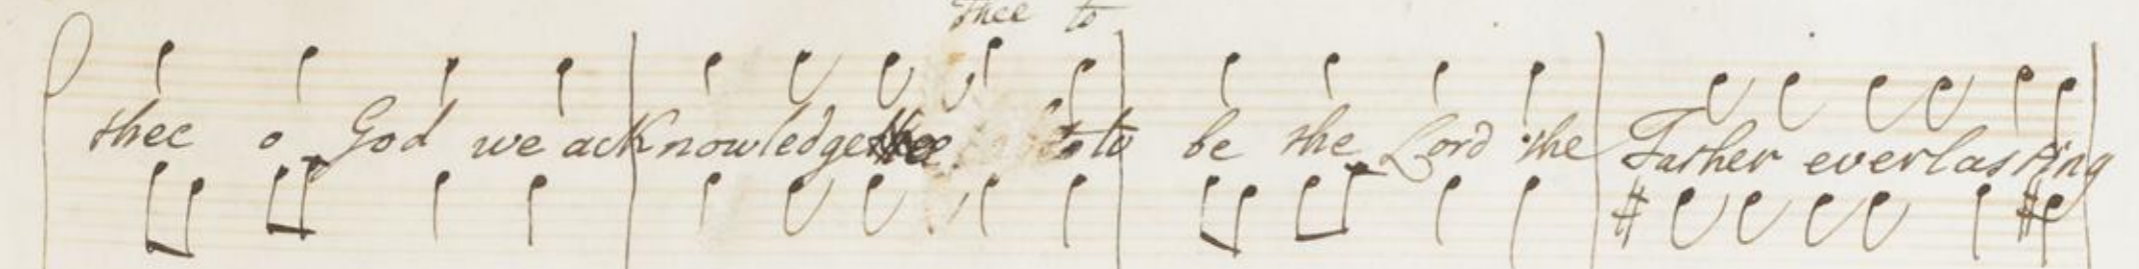 thee to
thee o God we acknowledge thee to to be the Lord the Father everlasting